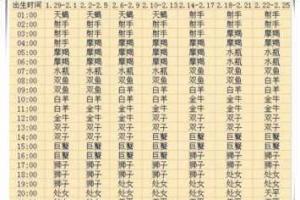 出生时间 1.29-2.1 2.2-2.5 2.6-2.9 2.10-2.13 2.14-2.17 2.18-2.21 2.22-2.25
01:00 天蝎 天蝎 天蝎 天蝎 射手 射手 射手
02:00 射手 射手 射手 射手 射手 射手 射手
03:00 射手 射手 射手 射手 射手 射手 摩羯
04:00 射手 射手 摩羯 摩羯 摩羯 摩羯 摩羯
05:00 摩羯 摩羯 摩羯 摩羯 摩羯 摩羯 水瓶
06:00 摩羯 摩羯 摩羯 水瓶 水瓶 水瓶 水瓶
07:00 水瓶 水瓶 水瓶 水瓶 双鱼 双鱼 双鱼
08:00 双鱼 双鱼 双鱼 双鱼 双鱼 双鱼 白羊
09:00 双鱼 双鱼 白羊 白羊 白羊 白羊 白羊
10:00 白羊 白羊 白羊 金牛 金牛 金牛 金牛
11:00 金牛 金牛 金牛 金牛 金牛 双子 双子
12:00 金牛 金牛 双子 双子 双子 双子 双子
13:00 双子 双子 双子 双子 双子 双子
14:00 双子 双子 巨蟹 巨蟹 巨蟹
15:00 巨蟹 巨蟹 巨蟹 巨蟹 巨蟹 巨蟹 巨蟹
16:00 巨蟹 巨蟹 巨蟹 巨蟹 狮子
17:00 狮子 狮子 狮子 狮子 狮子 狮子
18:00 狮子 狮子 狮子 狮子 狮子
19:00 狮子 处女 处女 处女
20:00 处女 处女 处女 处女 处女 处女 天平